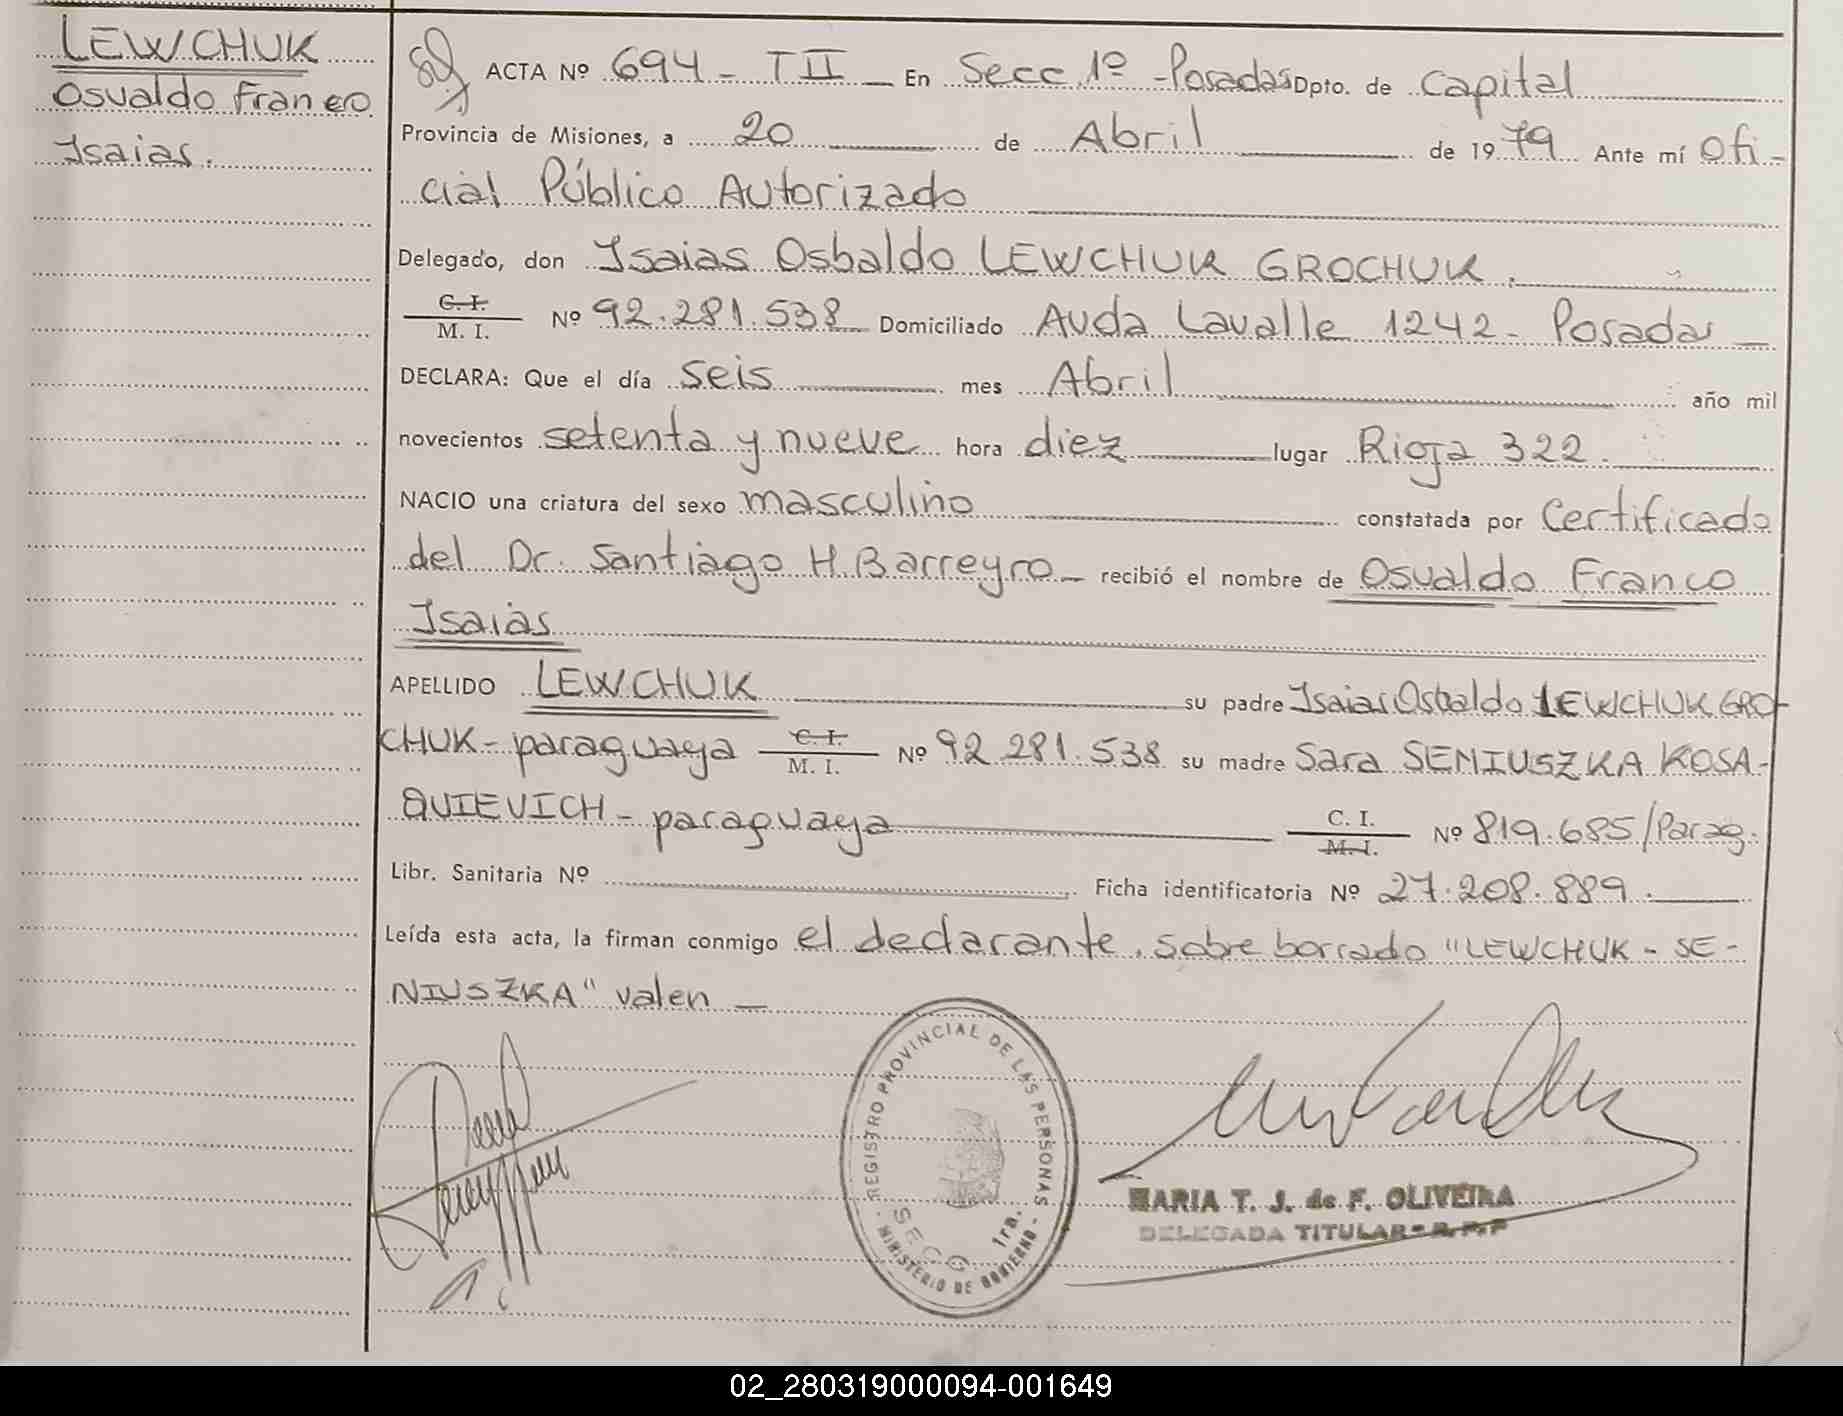 LEWCHUK
Osvaldo Franco
Isaias.
ACTA Nº 694 - TII - En Secc 1º - Posadas Dpto. de Capital
Provincia de Misiones, a 20 de Abril de 1979 Ante mí Ofi-
cial Público Autorizado
Delegado, don Isaias Osbaldo LEWCHUK GROCHUK.
C. I.
M. I. Nº 92.281.538 Domiciliado Avda Lavalle 1242 - Posadas -
DECLARA: Que el día seis mes Abril año mil
novecientos setenta y nueve hora diez lugar Rioja 322.
NACIO una criatura del sexo masculino constatada por Certificado
del Dr. Santiago H Barreyro - recibió el nombre de Osvaldo Franco
Isaias
APELLIDO LEWCHUK su padre Isaias Osbaldo LEWCHUK GRO-
CHUK - paraguaya C. I.
M. I. Nº 92.281.538 su madre Sara SENIUSZKA KOSA-
QUIEVICH - paraguaya C. I.
M. I. Nº 819.685/Parag.
Libr. Sanitaria Nº Ficha identificatoria Nº 27.208.889.
Leída esta acta, la firman conmigo el declarante, sobre borrado "LEWCHUK - SE-
NIUSZKA" valen -
REGISTRO PROVINCIAL DE LAS PERSONAS
SECC. 1ra.
MINISTERIO DE GOBIERNO
MARIA T. J. de F. OLIVEIRA
DELEGADA TITULAR - R.P.P
02_280319000094-001649